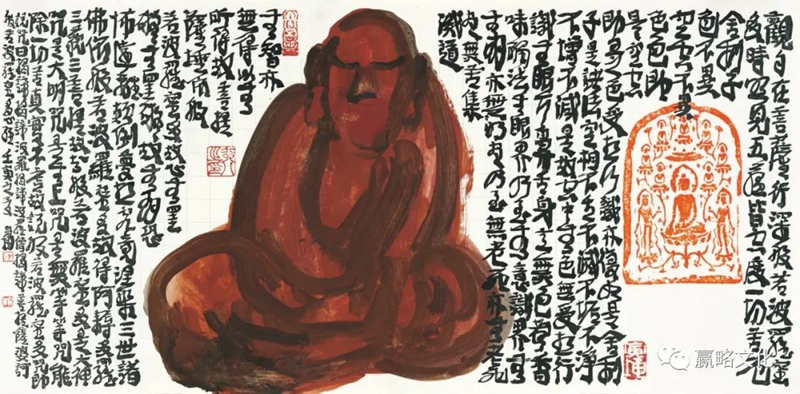 觀自在菩薩行深般若波羅蜜
多時照見五蘊皆空度一切苦厄
舍利子
色不異
空空不異
色色即
是空空
即是色受想行識亦復如是舍利
子是諸法空相不生不滅不垢不淨
不增不減是故空中無色無受想行
識無眼耳鼻舌身意無色聲香
味觸法無眼界乃至無意識界無
無明亦無無明盡乃至無老死亦無老死
盡無苦集
滅道
無智亦
無得以無
所得故菩提
薩埵依般
若波羅蜜多故心無罣
礙無罣礙故無有恐
怖遠離顛倒夢想究竟涅槃三世諸
佛依般若波羅蜜多故得阿耨多羅
三藐三菩提故知般若波羅蜜多是大神
咒是大明咒是無上咒是無等等咒能
除一切苦真實不虛故說般若波羅蜜多咒即
說咒曰揭諦揭諦波羅揭諦波羅僧揭諦菩提薩婆訶
般若波羅蜜多心經
赢略文化